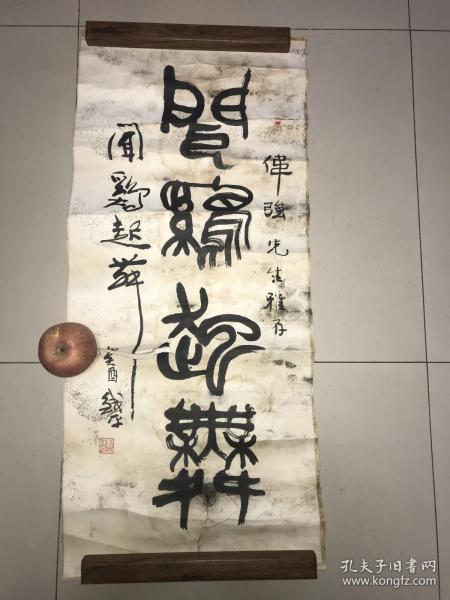 偉强先生雅存
聞鷄起舞
聞鷄起舞
癸酉
孔夫子旧书网
www.kongfz.com